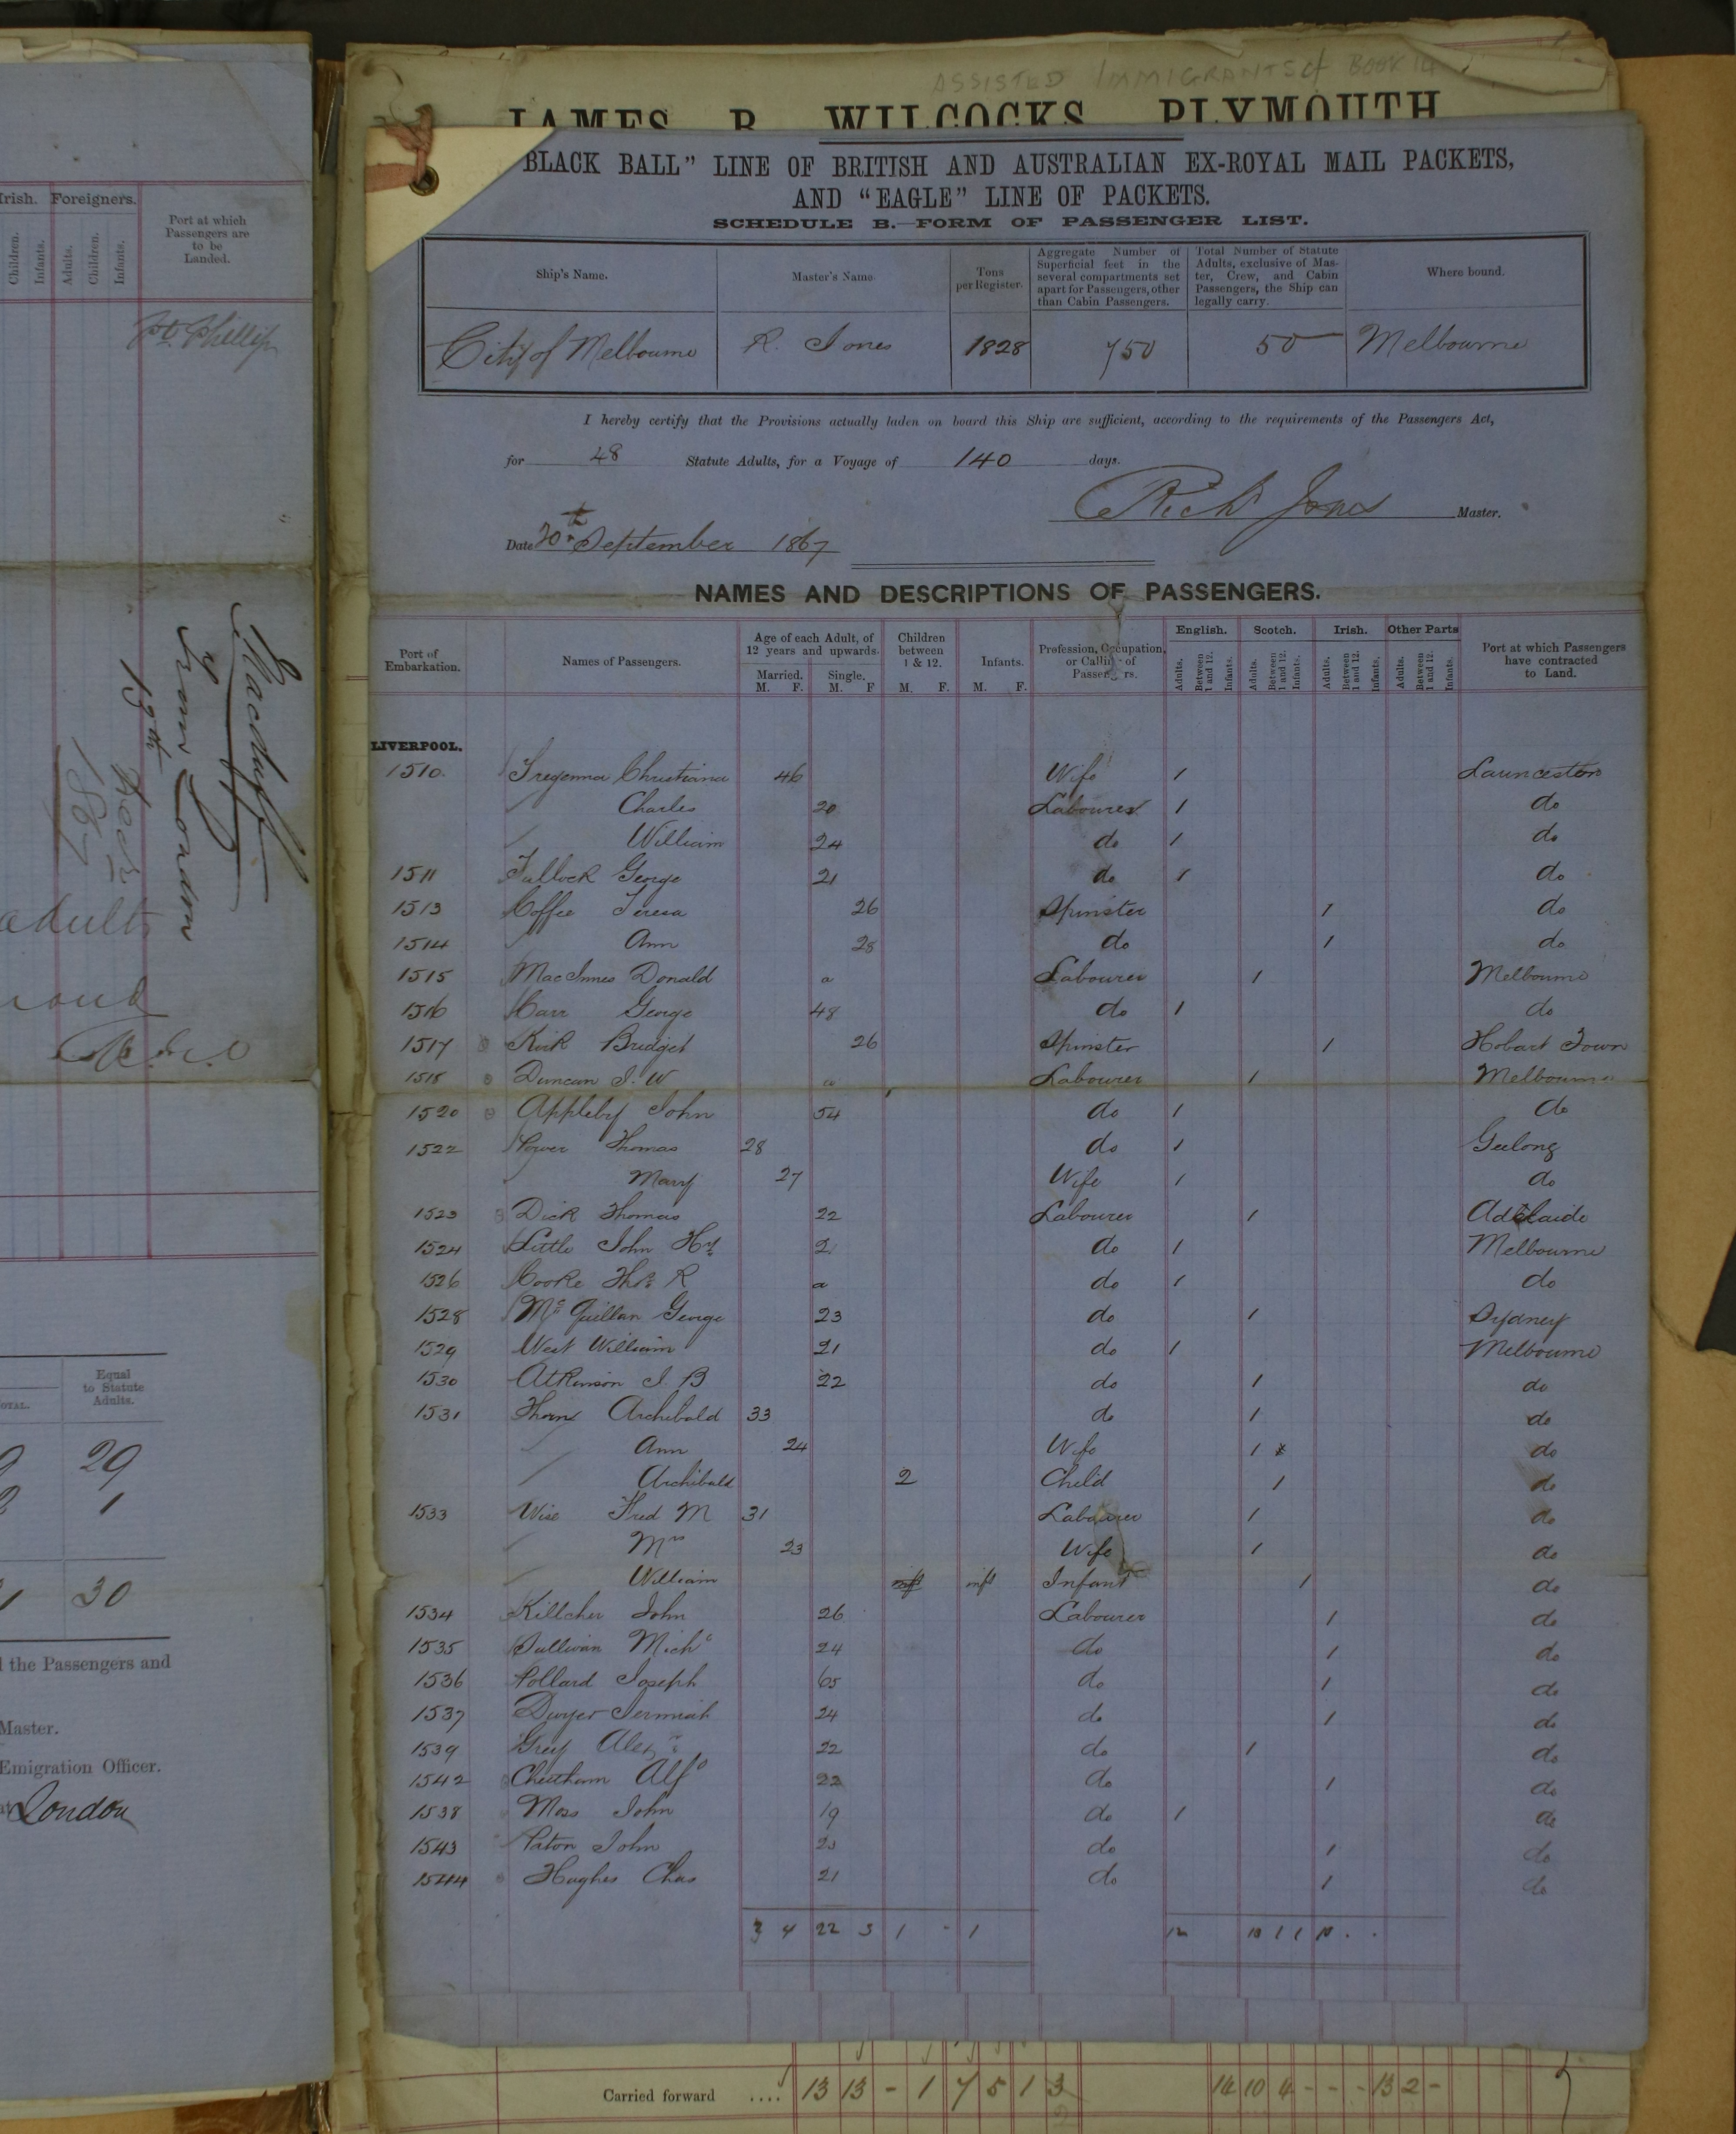 Irish. Foreigners.
Port at which
Passengers are
to be
Landed.
Children. Infants. Adults. Children. Infants.
Pt. Phillip
Macduff
from London
13th
1867
adults
Equal
to Statute
Adults.
TOTAL.
29
1
30
the Passengers and
Master.
Emigration Officer.
at London
ASSISTED IMMIGRANTS BOOK 14
JAMES B. WILCOCKS, PLYMOUTH
BLACK BALL" LINE OF BRITISH AND AUSTRALIAN EX-ROYAL MAIL PACKETS,
AND "EAGLE" LINE OF PACKETS.
SCHEDULE B.—FORM OF PASSENGER LIST.
Ship's Name. Master's Name. Tons per Register. Aggregate Number of Superficial feet in the several compartments set apart for Passengers, other than Cabin Passengers. Total Number of Statute Adults, exclusive of Master, Crew, and Cabin Passengers, the Ship can legally carry. Where bound.
City of Melbourne R. Jones 1828 750 50 Melbourne
I hereby certify that the Provisions actually laden on board this Ship are sufficient, according to the requirements of the Passengers Act,
for 48 Statute Adults, for a Voyage of 140 days.
Richd Jones Master.
Date 20th September 1867
NAMES AND DESCRIPTIONS OF PASSENGERS.
Port of Embarkation. Names of Passengers. Age of each Adult, of 12 years and upwards. Children between 1 & 12. Infants. Profession, Occupation, or Calling of Passengers. English. Scotch. Irish. Other Parts Port at which Passengers have contracted to Land.
Married. Single.
M. F. M. F M. F. M. F.
Adults. Between 1 and 12. Infants. Adults. Between 1 and 12. Infants. Adults. Between 1 and 12. Infants. Adults. Between 1 and 12. Infants.
LIVERPOOL.
1510 Tregenna Christiana 46 Wife 1 Launceston
Charles 20 Labourer 1 do
William 24 do 1 do
1511 Tullock George 21 do 1 do
1513 Coffee Teresa 26 Spinster 1 do
1514 Ann 28 do 1 do
1515 MacInnes Donald a Labourer 1 Melbourne
1516 Carr George 48 do 1 do
1517 Kirk Bridget 26 Spinster 1 Hobart Town
1518 Duncan J. W a Labourer 1 Melbourne
1520 Appleby John 54 do 1 do
1522 Power Thomas 28 do 1 Geelong
Mary 27 Wife 1 do
1523 Dick Thomas 22 Labourer 1 Adelaide
1524 Little John Hy 21 do 1 Melbourne
1526 Cooke Thos R a do 1 do
1528 Mc Quillan George 23 do 1 Sydney
1529 West William 21 do 1 Melbourne
1530 Atkinson J. B 22 do 1 do
1531 Thom Archibald 33 do 1 do
Ann 24 Wife 1 do
Archibald 2 Child 1 do
1533 Wise Fred M 31 Labourer 1 do
Mrs 23 Wife 1 do
William inft inft Infant 1 do
1534 Killcher John 26 Labourer 1 do
1535 Sullivan Michl 24 do 1 do
1536 Pollard Joseph 65 do 1 do
1537 Dwyer Jermiah 24 do 1 do
1539 Grey Alexr 22 do 1 do
1542 Cheetham Alfd 22 do 1 do
1538 Moss John 19 do 1 do
1543 Paton John 23 do 1 do
1544 Hughes Chas 21 do 1 do
3 4 22 3 1 - 1 12 10 1 1 10 . .
Carried forward .... 13 13 - 1 7 5 1 3 14 10 4 - - - 13 2 -